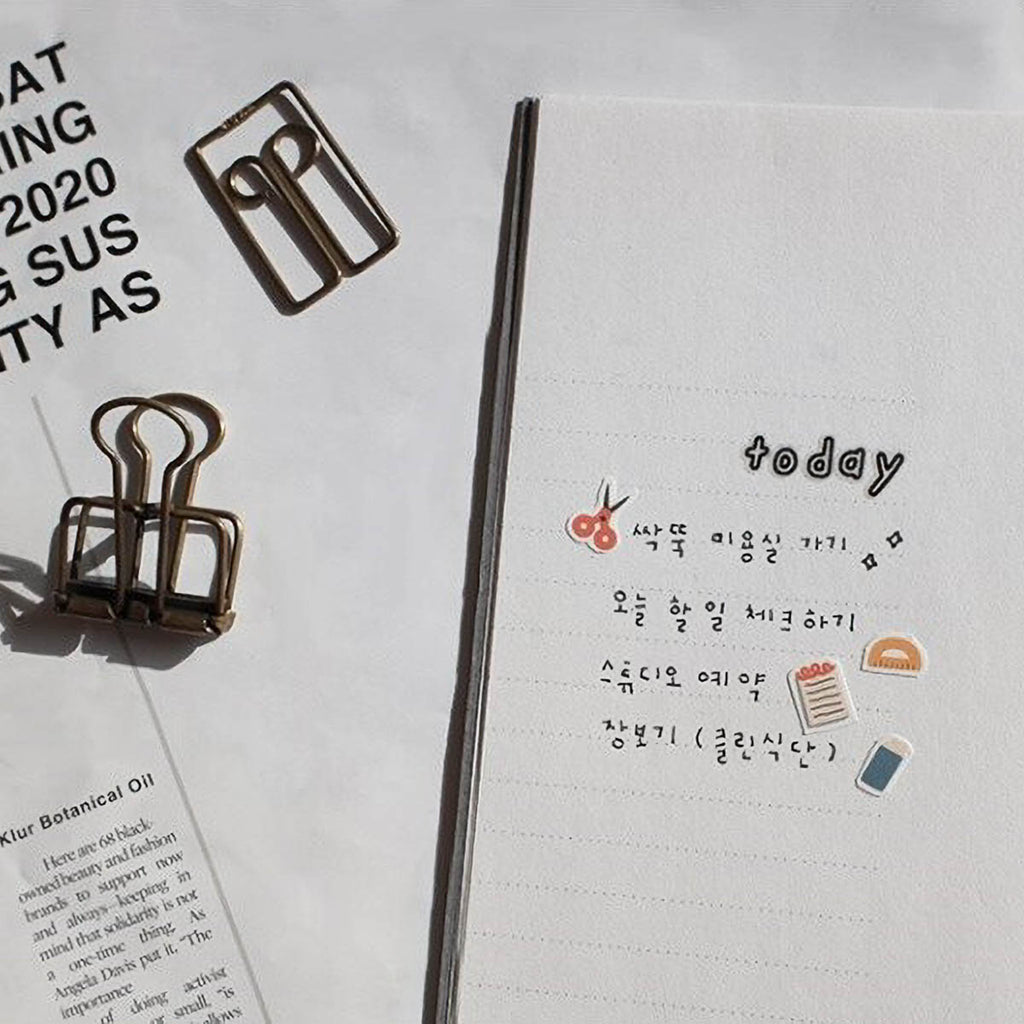 SAT
ING
2020
G SUS
ITY AS
Klur Botanical Oil
Here are 68 black-
owned beauty and fashion
brands to support now
and always—keeping in
mind that solidarity is not
a one-time thing. As
Angela Davis put it, “The
importance
of doing activist
or small, “is
allows
today
싹뚝 미용실 가기
오늘 할 일 체크하기
스튜디오 예약
장보기 (클린식단)